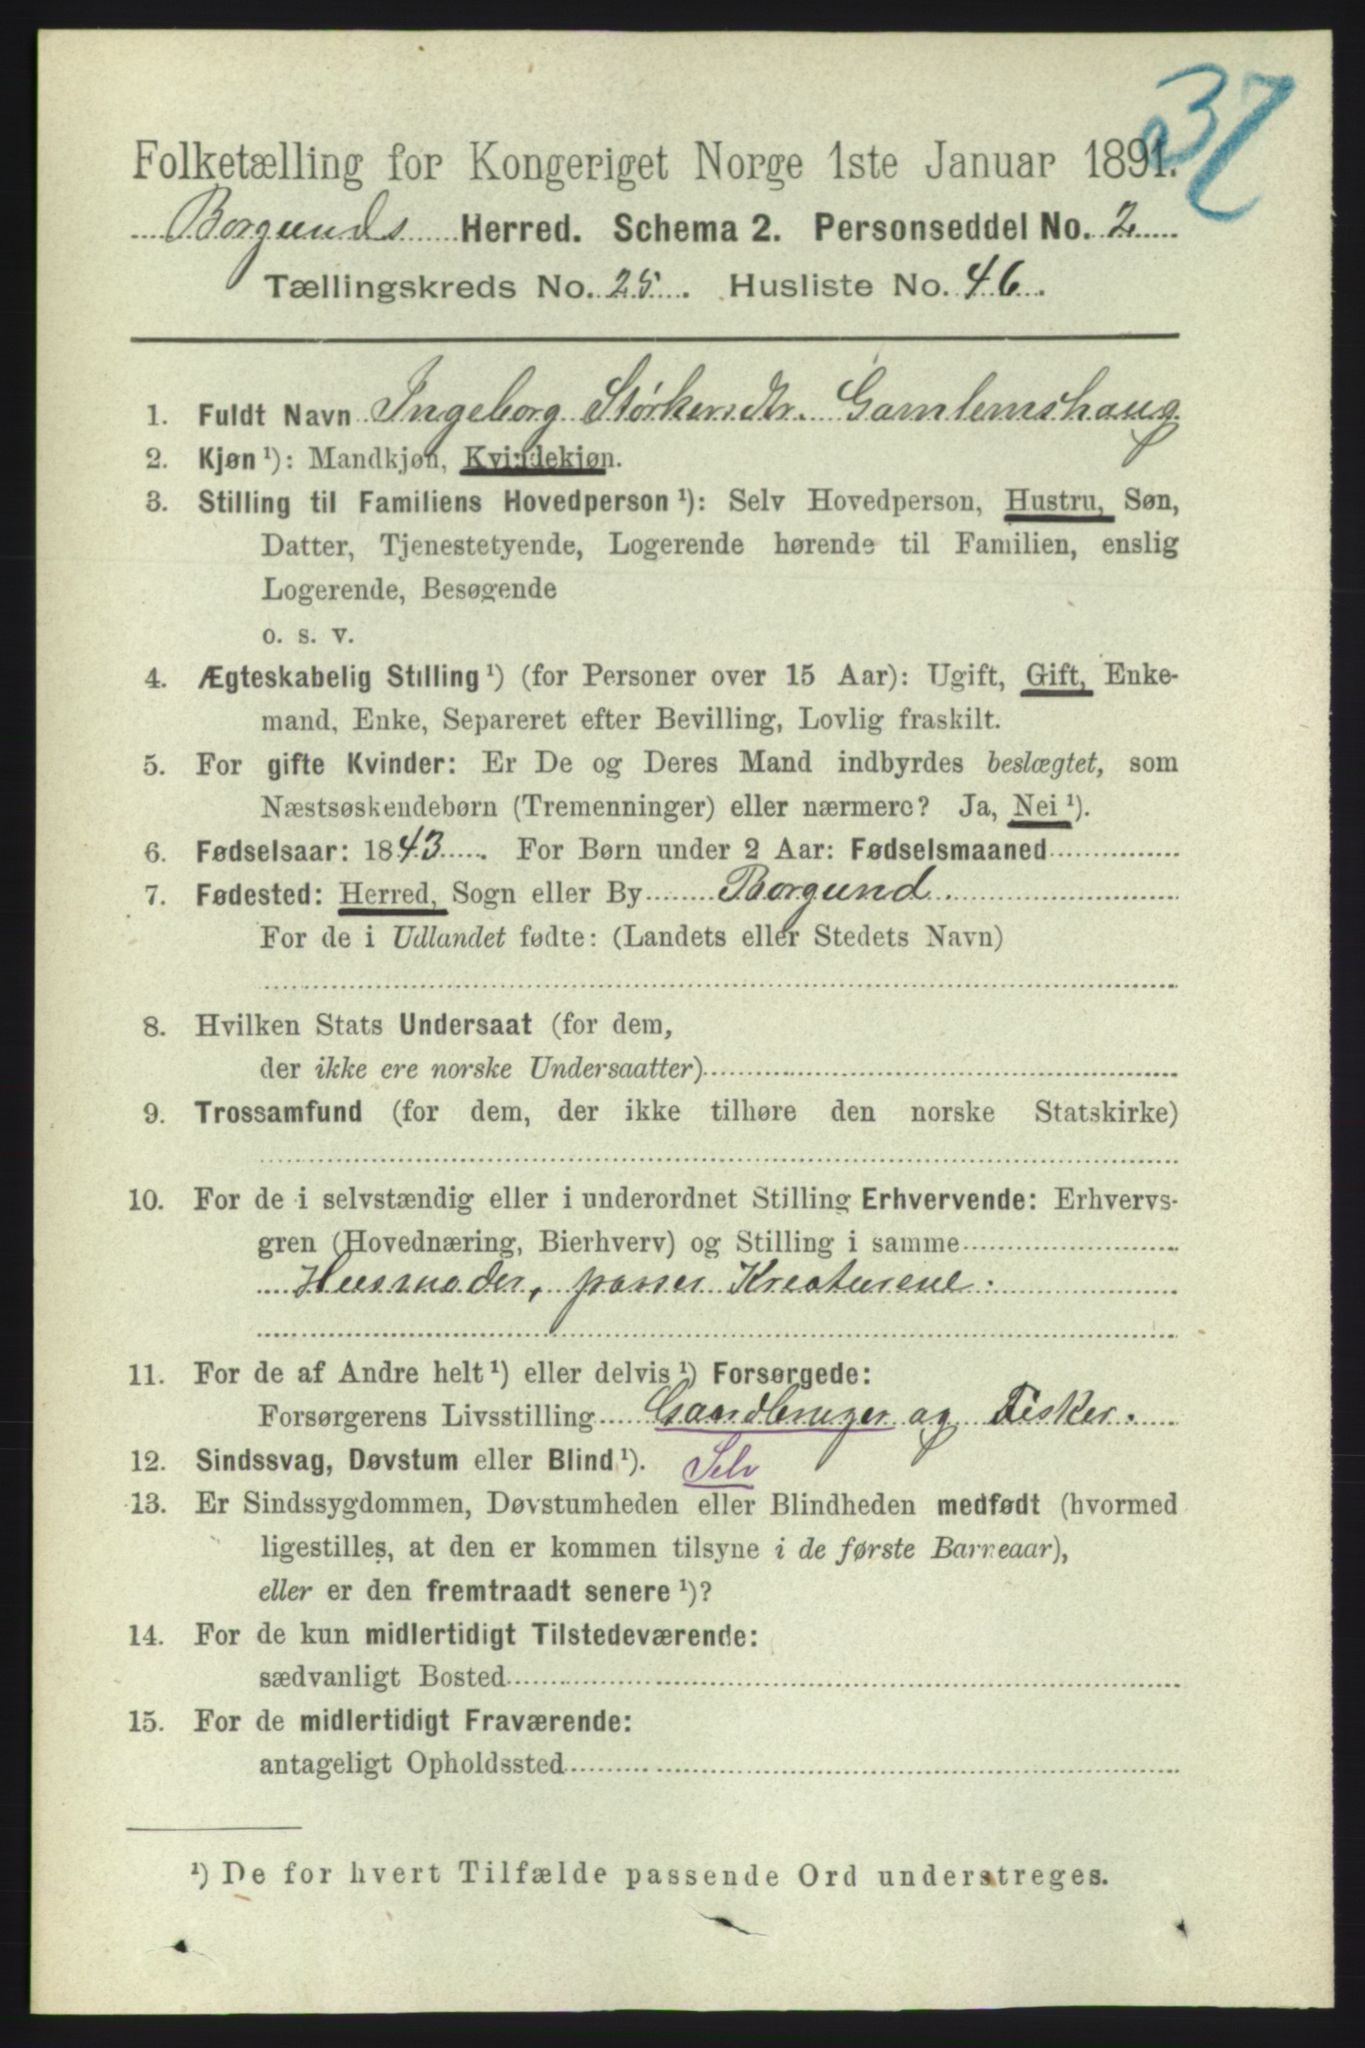 37
Folketælling for Kongeriget Norge 1ste Januar 1891.
Borgunds Herred. Schema 2. Personseddel No. 2
Tællingskreds No. 25. Husliste No. 46.
1. Fuldt Navn Ingeborg Størkersdtr. Gamlemshaug
2. Kjøn ¹): Mandkjøn, Kvindekjøn.
3. Stilling til Familiens Hovedperson ¹): Selv Hovedperson, Hustru, Søn,
Datter, Tjenestetyende, Logerende hørende til Familien, enslig
Logerende, Besøgende
o. s. v.
4. Ægteskabelig Stilling ¹) (for Personer over 15 Aar): Ugift, Gift, Enke-
mand, Enke, Separeret efter Bevilling, Lovlig fraskilt.
5. For gifte Kvinder: Er De og Deres Mand indbyrdes beslægtet, som
Næstsøskendebørn (Tremenninger) eller nærmere? Ja, Nei ¹).
6. Fødselsaar: 1843. For Børn under 2 Aar: Fødselsmaaned
7. Fødested: Herred, Sogn eller By Borgund
For de i Udlandet fødte: (Landets eller Stedets Navn)
8. Hvilken Stats Undersaat (for dem,
der ikke ere norske Undersaatter)
9. Trossamfund (for dem, der ikke tilhøre den norske Statskirke)
10. For de i selvstændig eller i underordnet Stilling Erhvervende: Erhvervs-
gren (Hovednæring, Bierhverv) og Stilling i samme
Husmoder, passer Kreaturene.
11. For de af Andre helt ¹) eller delvis ¹) Forsørgede:
Forsørgerens Livsstilling Gaardbruger og Fisker.
12. Sindssvag, Døvstum eller Blind ¹). Selv
13. Er Sindssygdommen, Døvstumheden eller Blindheden medfødt (hvormed
ligestilles, at den er kommen tilsyne i de første Barneaar),
eller er den fremtraadt senere ¹)?
14. For de kun midlertidigt Tilstedeværende:
sædvanligt Bosted
15. For de midlertidigt Fraværende:
antageligt Opholdssted
¹) De for hvert Tilfælde passende Ord understreges.